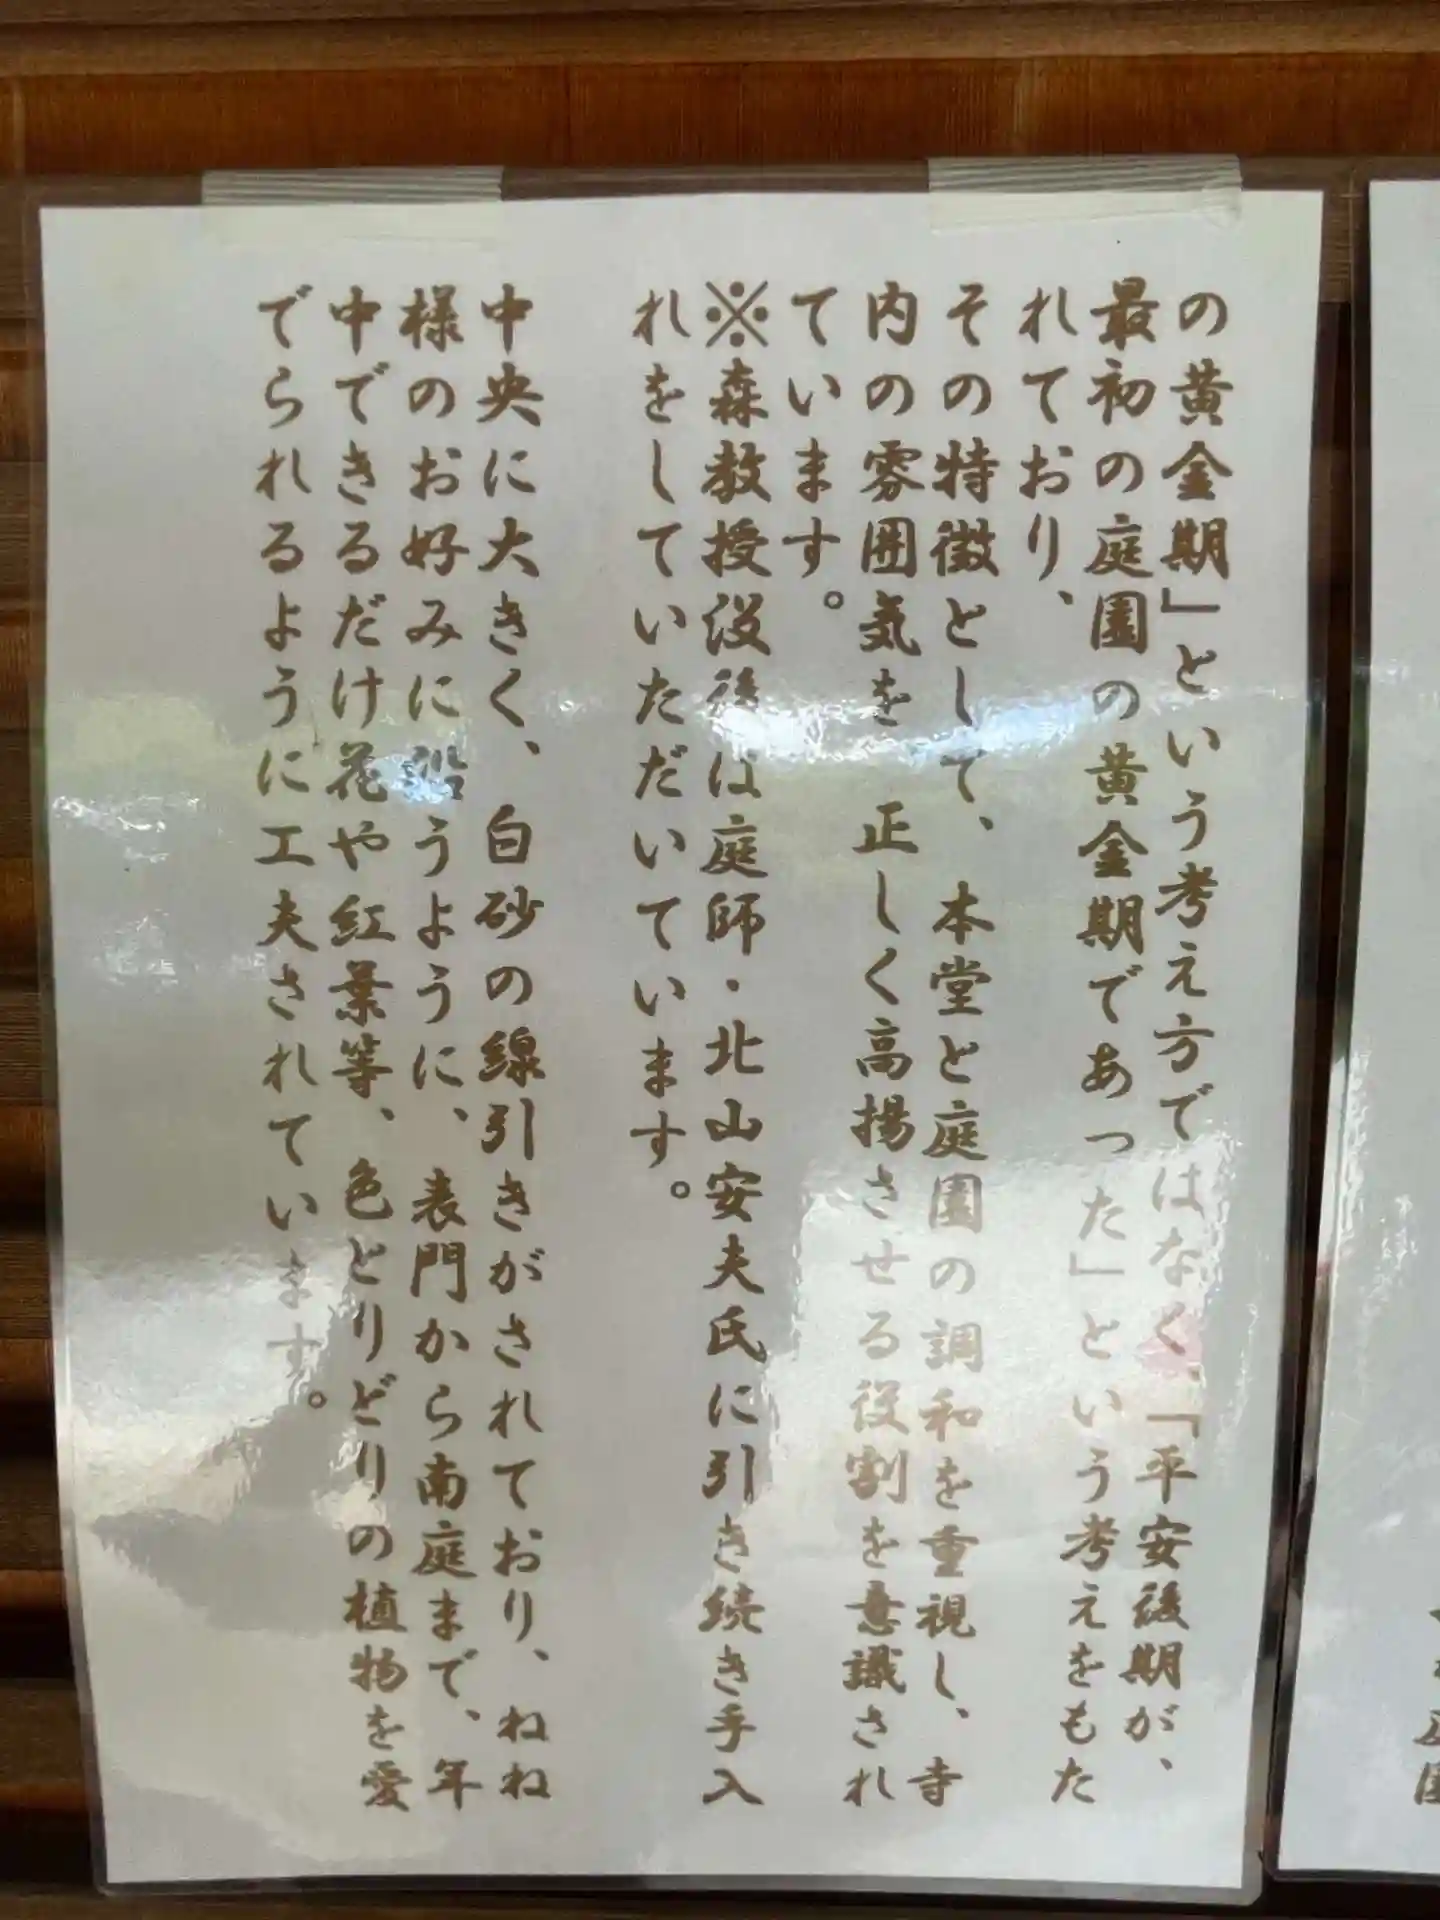 の黄金期」という考え方ではなく、「平安後期が、
最初の庭園の黄金期であった」という考えをもた
れており、
その特徴として、本堂と庭園の調和を重視し、寺
内の雰囲気を 正しく高揚させる役割を意識され
ています。
※森教授没後は庭師・北山安夫氏に引き続き手入
れをしていただいています。
中央に大きく、白砂の線引きがされており、ねね
様のお好みに沿うように、表門から南庭まで、年
中できるだけ花や紅葉等、色とりどりの植物を愛
でられるように工夫されています。